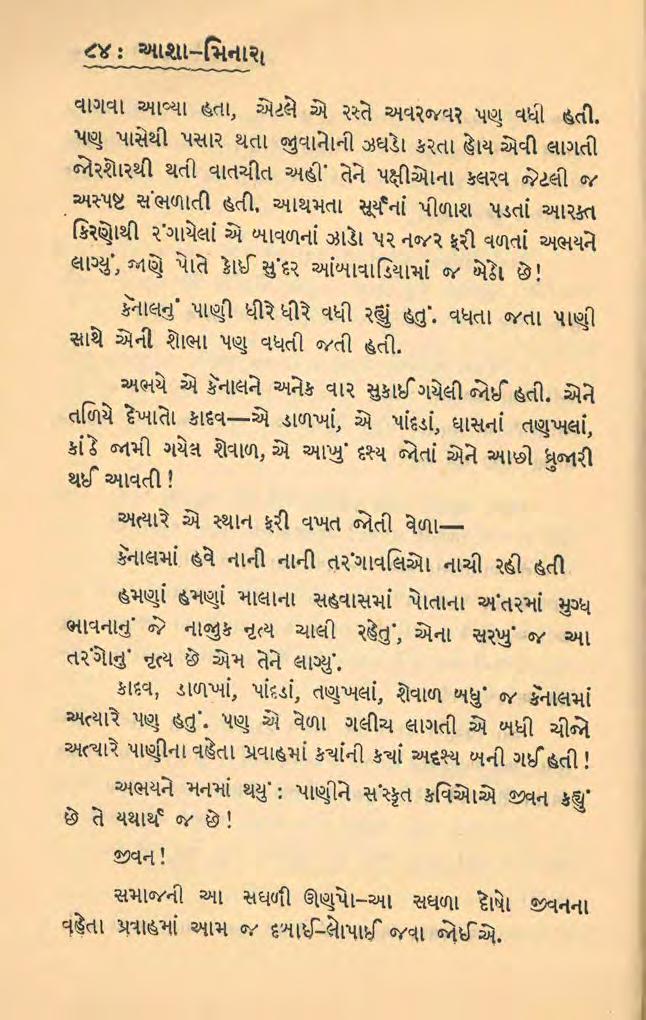 ૮૪ : આશા–મિનારા
વાગવા આવ્યા હતા, એટલે એ રસ્તે અવરજવર પણ વધી હતી.
પણ પાસેથી પસાર થતા જુવાનોની ઝઘડો કરતા હોય એવી લાગતી
જોરશોરથી થતી વાતચીત અહીં તેને પક્ષીઓના કલરવ જેટલી જ
અસ્પષ્ટ સંભળાતી હતી. આથમતા સૂર્યનાં પીળાશ પડતાં આરક્ત
કિરણોથી રંગાયેલાં એ બાવળનાં ઝાડો પર નજર ફરી વળતાં અભયને
લાગ્યું, જાણે પોતે કોઈ સુંદર આંબાવાડિયામાં જ બેઠો છે!
કૅનાલનું પાણી ધીરે ધીરે વધી રહ્યું હતું. વધતા જતા પાણી
સાથે એની શોભા પણ વધતી જતી હતી.
અભયે એ કૅનાલને અનેક વાર સુકાઈ ગયેલી જોઈ હતી. એને
તળિયે દેખાતો કાદવ—એ ડાળખાં, એ પાંદડાં, ઘાસનાં તણખલાં,
કાંઠે જામી ગયેલ શેવાળ, એ આખું દૃશ્ય જોતાં એને આછી ધ્રુજારી
થઈ આવતી!
અત્યારે એ સ્થાન ફરી વખત જોતી વેળા—
કૅનાલમાં હવે નાની નાની તરંગાવલિઓ નાચી રહી હતી
હમણાં હમણાં માલાના સહવાસમાં પોતાના અંતરમાં મુગ્ધ
ભાવનાનું જે નાજુક નૃત્ય ચાલી રહેતું, એના સરખું જ આ
તરંગોનું નૃત્ય છે એમ તેને લાગ્યું.
કાદવ, ડાળખાં, પાંદડાં, તણખલાં, શેવાળ બધું જ કૅનાલમાં
અત્યારે પણ હતું. પણ એ વેળા ગલીચ લાગતી એ બધી ચીજો
અત્યારે પાણીના વહેતા પ્રવાહમાં ક્યાંની ક્યાં અદૃશ્ય બની ગઈ હતી!
અભયને મનમાં થયું : પાણીને સંસ્કૃત કવિઓએ જીવન કહ્યું
છે તે યથાર્થ જ છે!
જીવન!
સમાજની આ સઘળી ઊણપો–આ સઘળા દોષો જીવનના
વહેતા પ્રવાહમાં આમ જ દબાઈ–લોપાઈ જવા જોઈએ.